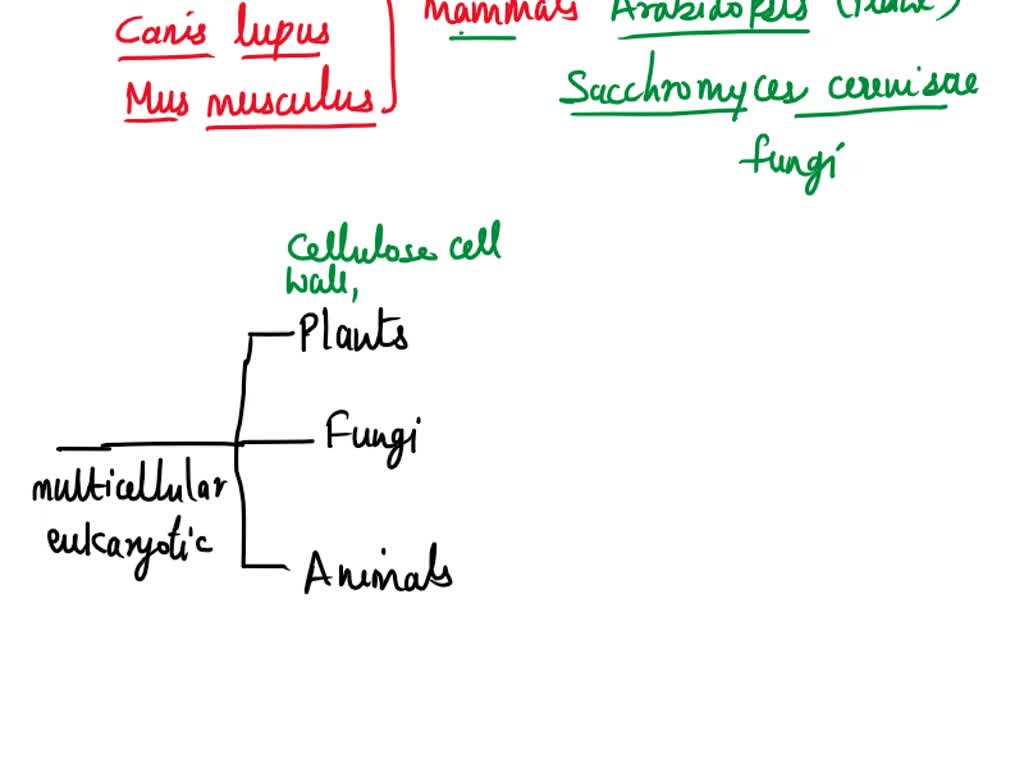 Canis lupus
Mus musculus
mammals Arabidopsis
Sacchromyces cerevisae
fungi
Cellulose cell
wall,
Plants
Fungi
multicellular
eukaryotic
Animals